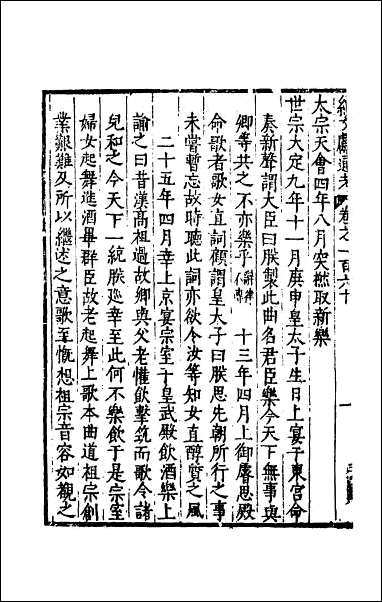 續文獻通考 卷之一百六十
太宗天會四年八月突撚取新樂
世宗大定九年十一月庚申皇太子生日上宴于東宮命
奏新聲謂大臣曰朕製此曲名君臣樂今天下無事與
卿等共之不亦樂乎辭律不傳 十三年四月上御睿思殿
命歌者歌女直詞顧謂皇太子曰朕思先朝所行之事
未嘗暫忘故時聽此詞亦欲令汝等知女直醇質之風
二十五年四月幸上京宴宗室于皇武殿飲酒樂上
諭之曰昔漢高祖過故鄉與父老懽飲擊筑而歌令諸
兒和之今天下一統朕巡幸至此何不樂飲于是宗室
婦女起舞進酒畢群臣故老起舞上歌本曲道祖宗創
業艱難及所以繼述之意歌至慨想祖宗音容如覩之